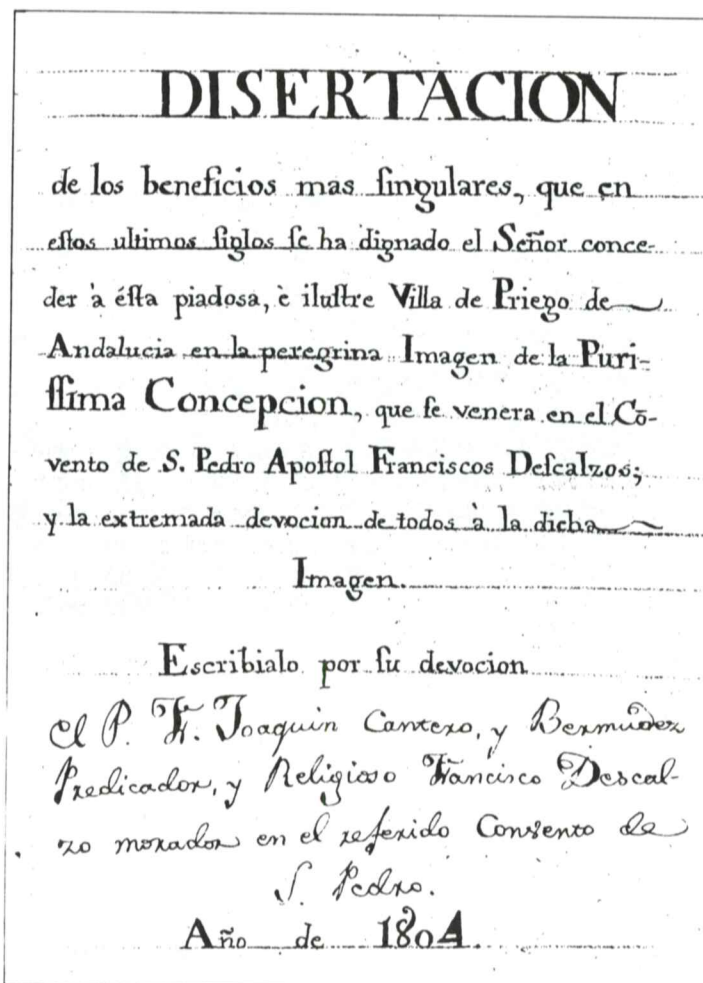 DISERTACION
de los beneficios mas ſingulares, que en
eſtos ultimos ſiglos ſe ha dignado el Señor conce-
der à éſta piadosa, è iluſtre Villa de Priego de
Andalucia en la peregrina Imagen de la Puri-
ſſima Concepcion, que ſe venera en el Cō-
vento de S. Pedro Apoſtol Franciscos Deſcalzos;
y la extremada devocion de todos à la dicha
Imagen.
Escribialo por ſu devocion
el P. Fr. Joaquin Cantero, y Bermudez
Predicador, y Religioso Francisco Descal-
zo morador en el referido Convento de
S. Pedro.
Año de 1804.